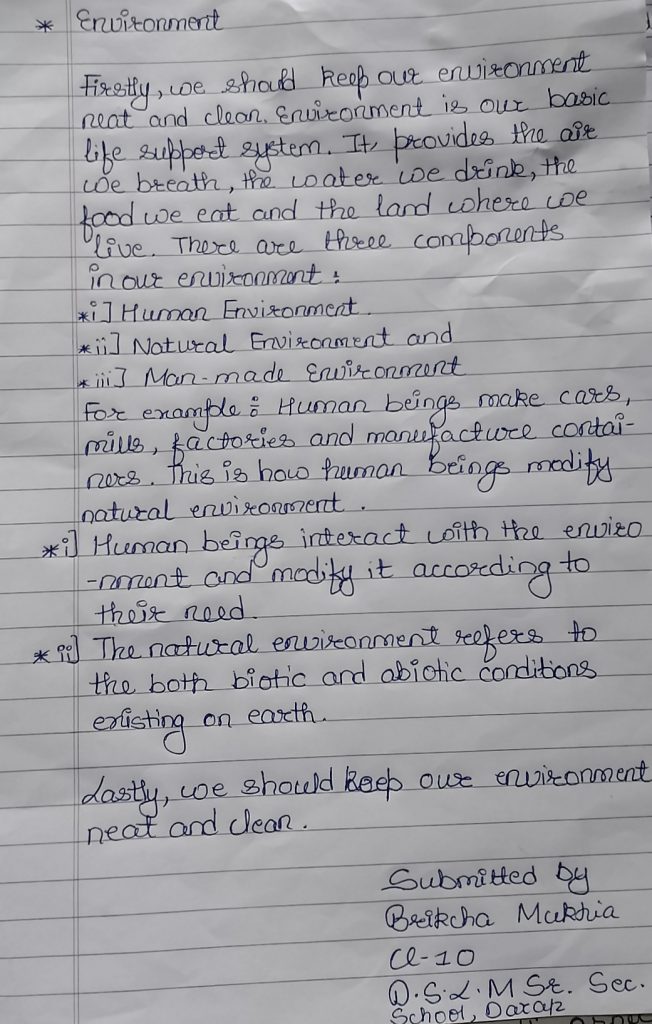 * Environment
Firstly, we should keep our environment
neat and clean. Environment is our basic
life support system. It, provides the air
we breath, the water we drink, the
food we eat and the land where we
live. There are three components
in our environment :
*i] Human Environment.
*ii] Natural Environment and
*iii] Man-made Environment
For example : Human beings make cars,
mills, factories and manufacture contai-
ners. This is how human beings modify
natural environment.
*i] Human beings interact with the enviro
-nment and modify it according to
their need.
*ii] The natural environment refers to
the both biotic and abiotic conditions
existing on earth.
Lastly, we should keep our environment
neat and clean.
Submitted by
Brikcha Mukhia
Cl-10
D.S.L.M Sr. Sec.
School, Darap